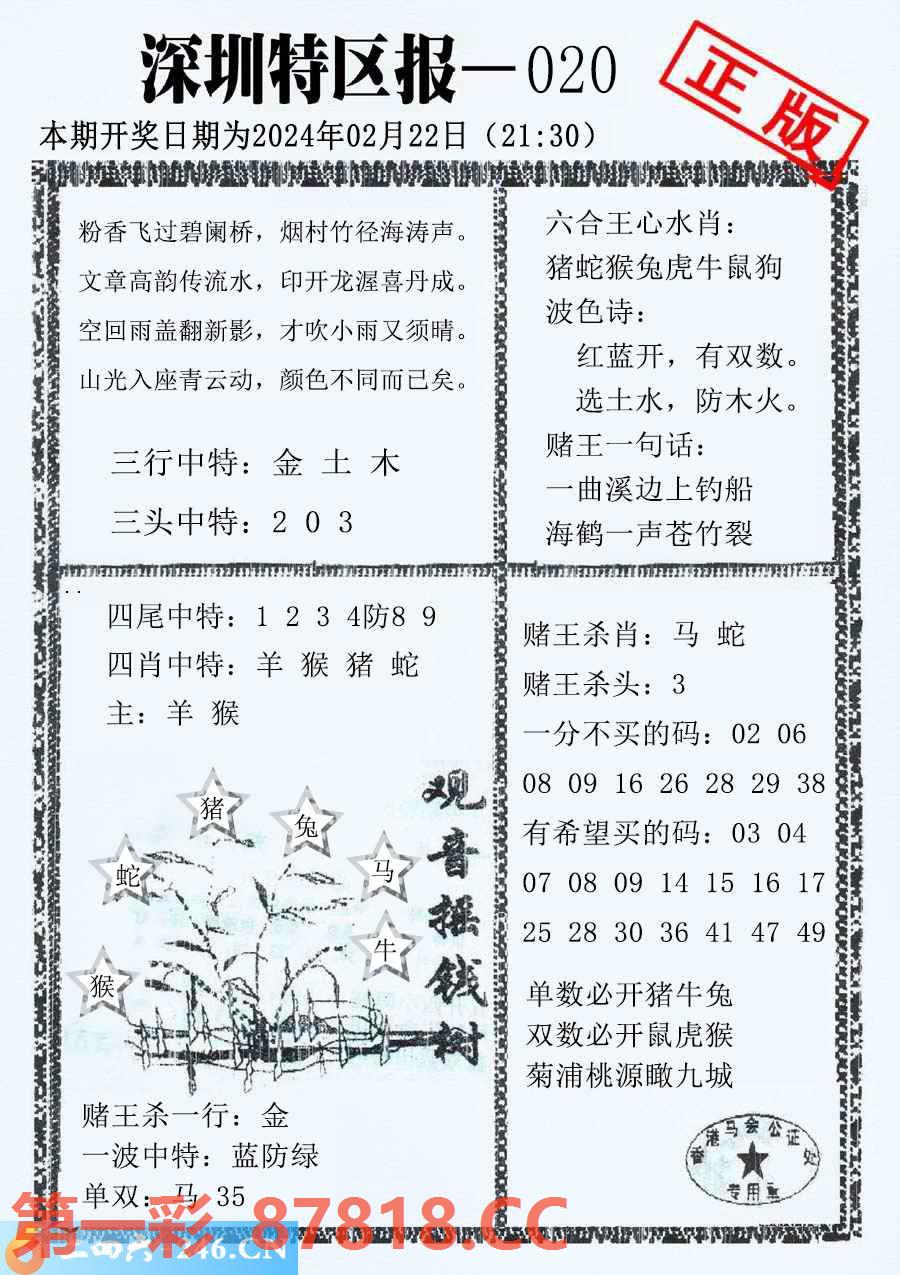 深圳特区报—020
正版
本期开奖日期为2024年02月22日（21:30）
粉香飞过碧阑桥，烟村竹径海涛声。
文章高韵传流水，印开龙渥喜丹成。
空回雨盖翻新影，才吹小雨又须晴。
山光入座青云动，颜色不同而已矣。
三行中特：金 土 木
三头中特：2 0 3
六合王心水肖：
猪蛇猴兔虎牛鼠狗
波色诗：
红蓝开，有双数。
选土水，防木火。
赌王一句话：
一曲溪边上钓船
海鹤一声苍竹裂
四尾中特：1 2 3 4防8 9
四肖中特：羊 猴 猪 蛇
主：羊 猴
猪
兔
蛇
马
牛
猴
观音摇钱树
赌王杀一行：金
一波中特：蓝防绿
单双：马 35
赌王杀肖：马 蛇
赌王杀头：3
一分不买的码：02 06
08 09 16 26 28 29 38
有希望买的码：03 04
07 08 09 14 15 16 17
25 28 30 36 41 47 49
单数必开猪牛兔
双数必开鼠虎猴
菊浦桃源瞰九城
香港马会公证处
专用章
第一彩 87818.CC
246.CN